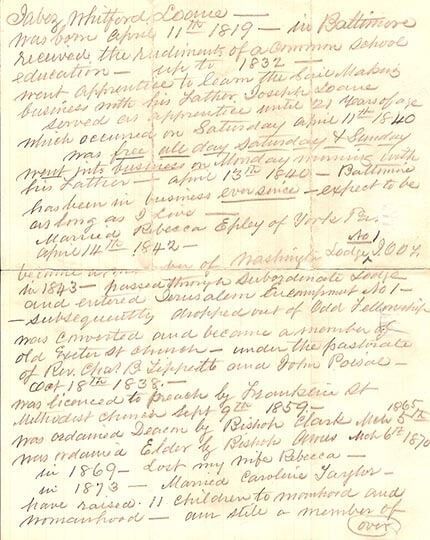 Jabez Whitford Loane —
was born April 11th 1819 — in Baltimore
received the rudiments of a common school
education — up to 1832 —
went apprentice to learn the Sail Making
business with his Father Joseph Loane
served as apprentice until 21 years of age
which occurred on Saturday April 11th 1840
was free all day Saturday & Sunday
went into business on Monday morning with
his Father — April 13th 1840 — Baltimore
has been in business ever since — expect to be
as long as I live —
Married Rebecca Epley of York Pa.
April 14th 1842 —
became a member of Washington Lodge No. 1 I.O.O.F.
in 1843 — passed through Subordinate Lodge
and entered Jerusalem Encampment No 1 —
— subsequently dropped out of Odd Fellowship
was converted and became a member of
old Exeter St church — under the pastorate
of Rev. Chas. B. Tippett and John Poisal —
Oct 18th 1838. —
was licenced to preach by Franklin St
Methodist church Sept 9th 1859 —
was ordained Deacon by Bishop Clark Mch 5th 1865
was ordained Elder by Bishop Ames Mch 6th 1870
in 1869 — Lost my wife Rebecca —
in 1873 — Married Caroline Taylor —
have raised 11 children to manhood and
womanhood — am still a member of
over